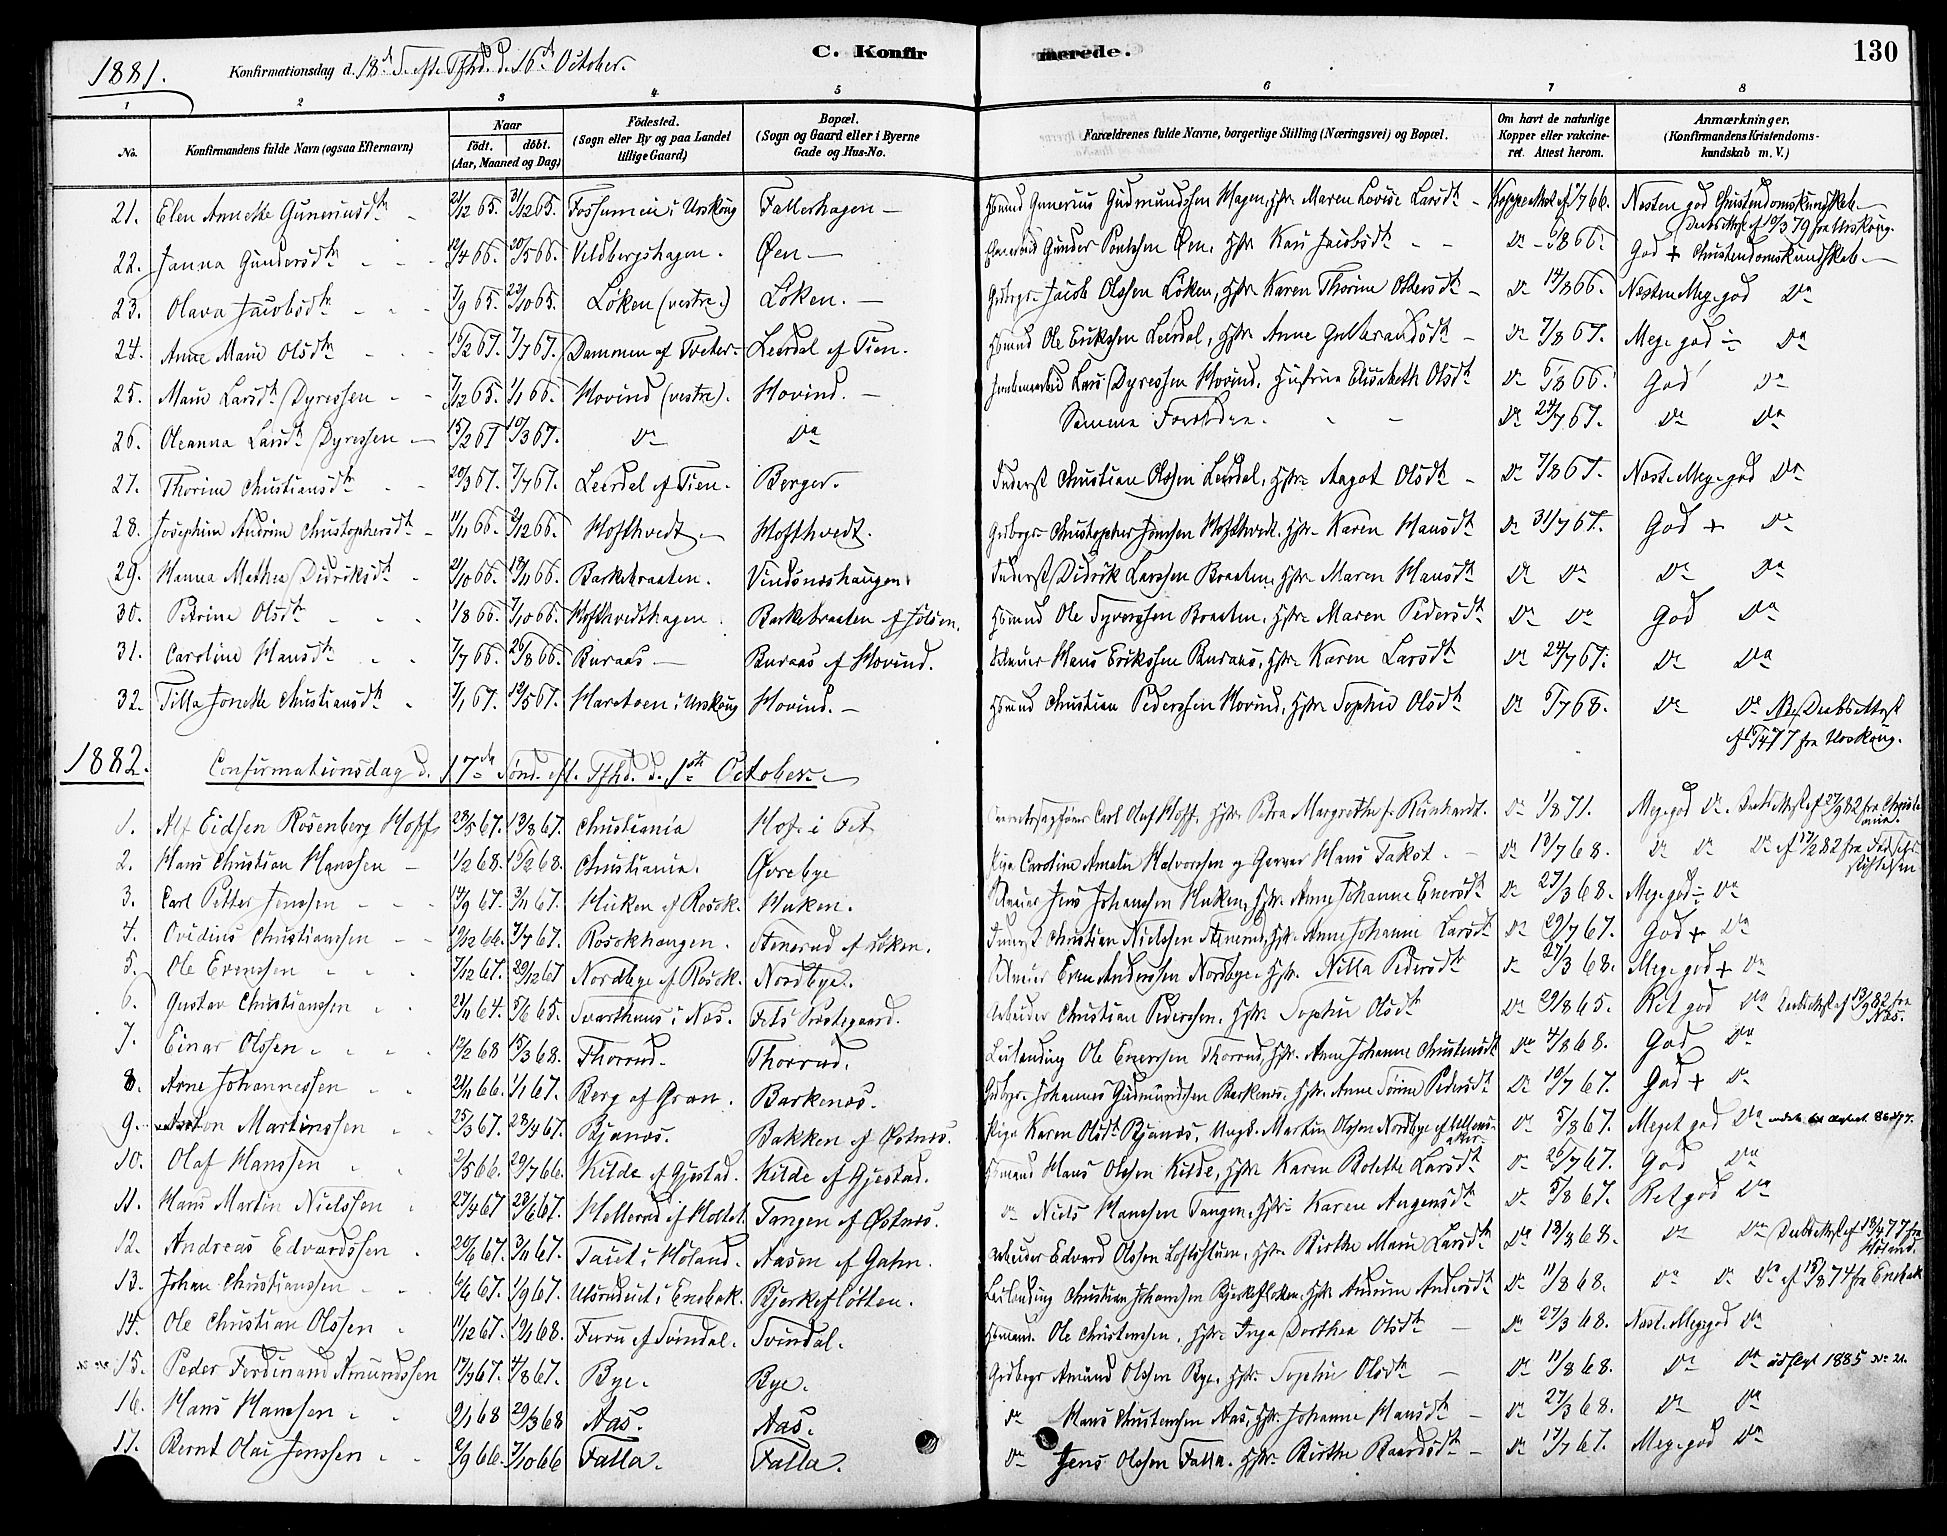 1881. Konfirmationsdag d. 18de S. eft. Tfhd. d. 16de October.
C. Konfirmerede.
130
1 2 3 4 5 6 7 8
No. Konfirmandens fulde Navn (ogsaa Efternavn) Naar født. døbt. (Aar, Maaned og Dag) Fødested. (Sogn eller By og paa Landet tillige Gaard) Bopæl. (Sogn og Gaard eller i Byerne Gade og Hus-No. Forældrenes fulde Navne, borgerlige Stilling (Næringsvei) og Bopæl. Om havt de naturlige Kopper eller vakcineret. Attest herom. Anmærkninger. (Konfirmandens Kristendomskundskab m. V.)
21. Elen Annette Guneriusdt 21/12 65. 31/12 65. Fossumeie i Urskoug Fallerhagen Hsmnd Gunerius Gudmundsen Hagen, Hstr. Maren Lovise Larsdt Næsten god Christendomskundskab
Døbeattest af 10/3 79 fra Urskoug.
22. Janna Gundersdt 12/4 66. 20/5 66. Veldbergshagen. Øen Gunder Poulsen Øen, Hstr. Kari Jacobsdt Do 6/8 66. God + Christendomskundskab
23. Olava Jacobsdt 7/9 65. 22/10 65. Løken (vestre.) Løken. Gdbrgr. Jacob Olssen Løken, Hstr. Karen Thorine Oldersdt Do 14/8 66. Næsten Meg. god Do
24. Anne Marie Olsdt 15/2 67. 7/7 67. Dammen af Tveter. Leirdal af Tien. Hsmnd Ole Eriksen Leirdal, Hstr. Anne Gulbrandsdt Do 7/8 67. Meg. god ÷ Do
25. Marie Larsdt /Dyressen 7/12 65. 1/1 66. Hovind (vestre). Hovind. Lars Dyressen Hovind, Hustrue Elisabeth Olsdt Do 6/8 66. God Do
26. Oleanna Larsdt /Dyressen 15/2 67 10/3 67. Do Do Samme Forældre. Do 24/7 67. Do Do
27. Thorine Christiansdt 20/3 67. 7/7 67. Leirdal af Tien. Berger. Inderst Christian Olssen Leirdal, Hstr. Aagot Olsdt Do 7/8 67. Næst. Meg. god Do
28. Josephine Andrine Christophersdt 11/11 66. 2/12 66. Hofthvedt Hofthvedt. Gdbrgr. Christopher Jonsen Hofthvedt. Hstr. Karen Hansdt Do 31/7 67. God + Do
29. Hanna Mathea Didriksdt 21/10 66. 18/11 66. Barkebraaten. Vindsneshaugen. Inderst Didrik Larssen Braaten, Hstr. Maren Hansdt Do Do Do Do
30. Petrine Olsdt 1/8 66. 7/10 66. Hofthvedthagen. Barkebraaten af Jølsen. Hsmnd Ole Syversen Braaten, Hstr. Maren Pedersdt Do Do God Do
31. Caroline Hansdt 7/7 66. 26/8 66. Buraas Buraas af Hovind. Hans Eriksen Buraas, Hstr. Karen Larsdt Do 24/7 67. Do Do
32. Tilla Jonette Christiansdt 7/1 67. 12/5 67. Haretoen i Urskoug Hovind. Hsmnd Christian Pedersen Hovind, Hstr. Sophie Olsdt Do 6/7 68. Do Do NB. Døbeattest
fra Urskoug.
1882. Confirmationsdag d. 17de Sønd. eft. Tfhd. d. 1ste October.
1. Alf Eidsen Rosenberg Hoff 28/5 67. 13/8 67. Christiania Hof i Fet Carl Olaf Hoff. Hstr. Petra Margrethe f. Reinhardt. Do 1/8 71. Meg. god Do. Døbeattest af 27/9 82 fra Christiania.
2. Hans Christian Hanssen 1/2 68. Christiania. Øvrebye Pige Caroline Amalie Halvorsen og Garver Hans Takst. Do 13/7 68. Do Do Do af 17/2 82 fra Fødselsstiftelsen
3. Carl Petter Jenssen 14/9 67. 3/11 67. Huken af Rosok. Huken. Jens Johansen Huken, Hstr. Anne Johanne Enersdt Do 27/3 68. Meg. god ÷ Do
4. Ovidius Christianssen 12/12 66. 7/7 67. Rosokhaugen. Amerud af Løken. Inderst Christian Nielssen Amerud, Hstr. Anne Johanne Larsdt Do 29/7 67. God + Do
5. Ole Evenssen 7/12 67. 29/12 67 Nordbye af Rosok. Nordbye. Even Andersen Nordbye, Hstr. Nilla Pedersdt Do 27/3 68. Meg. god + Do
6. Gustav Christianssen 21/11 64. 5/6 65. Svarthuus i Næs. Fets Præstegaard. Arbeider Christian Pedersen, Hstr. Sophie Olsdt Do 29/8 65. Ret god Do Døbeattest af 13/9 82 fra Næs.
7. Einar Olssen 12/2 68 15/3 68. Thorrud. Thorrud. Leilending Ole Enerssen Thorrud, Hstr. Anne Johanne Christensdt Do 4/8 68. God Do
8. Arne Johannessen 21/11 66. 1/1 67. Berg af Gran. Barkenæs. Gdbgr. Johannes Gudmundsen Barkenæs. Hstr. Anne Sørine Pedersdt Do 10/7 67. God + Do
9. Anton Martinssen 25/3 67. 28/4 67. Bjanæs. Bakken af Østnæs. Pige Karen Olsdt Bjanæs, Ungk. Martin Olssen Nordbye Do 5/8 67. Meget god Do
10. Olaf Hanssen 2/5 66. 29/7 66. Kilde af Gjestad. Kilde af Gjestad. Hsmand Hans Olssen Kilde, Hstr. Karen Bolette Larsdt Do 26/7 67. God Do
11. Hans Martin Nielssen 27/4 67 23/6 67. Hellerud af Holtet. Tangen af Østnæs. Do Niels Hanssen Tangen, Hstr. Karen Aagensdt Do 5/8 67. Ret god Do
12. Andreas Edvardssen 20/6 67. 3/11 67. Taiet i Høland. Aasen af Gahn. Arbeider Edvard Olssen Loftstuen, Hstr. Birthe Marie Larsdt Do 18/3 68. Do Do Døbeattest af 18/4 77 fra Høland.
13. Johan Christianssen 6/6 67. 1/9 67. i Enebak. Bjerkefløtten. Leilending Christian Johansen Bjerkefløtten. Hstr. Andrine Andersdt Do 11/8 68. Do Do Do af 15/8 74 fra Enebak
14. Ole Christian Olssen 11/12 67. 19/1 68. Furu af Svindal. Svindal. Hsmand. Ole Christensen, Hstr. Inga Dorthea Olsdt Do 27/3 68. Næst. Meg. god Do
15. Peder Ferdinand Amundssen 17/7 67. 4/8 67. Bye. Bye. Gdbrgr Amund Olssen Bye, Hstr. Sophie Olsdt Do 11/8 68. Do Do udflyt 1885 No 21.
16. Hans Hanssen 2/1 68 29/3 68 Aas. Aas. Do Hans Christensen Aas, Hstr. Johanne Hansdt Do 27/3 68. Do Do
17. Bernt Olai Jenssen 2/9 66. 7/10 66 Falla. Falla. Do Jens Olssen Falla. Hstr. Birthe Baardsdt Do 17/7 67. Meg. god Do